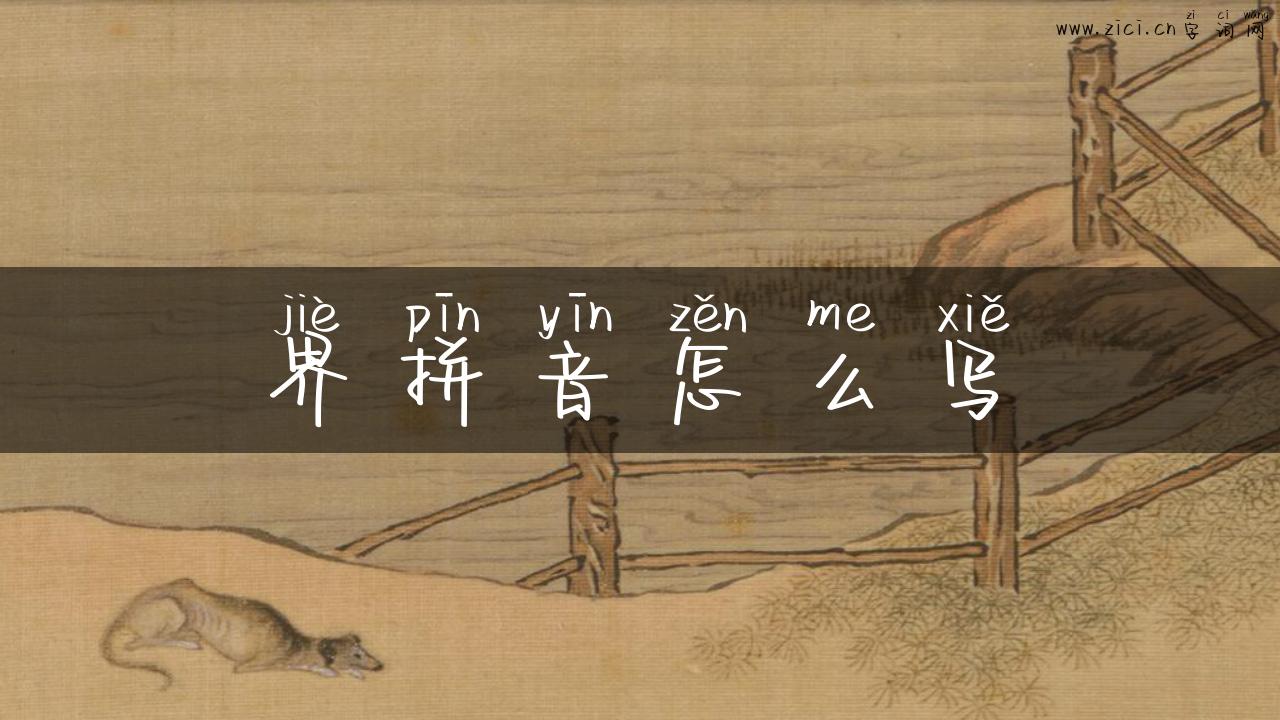 zi ci wang
www.zici.cn 字词网
jiè pīn yīn zěn me xiě
界拼音怎么写